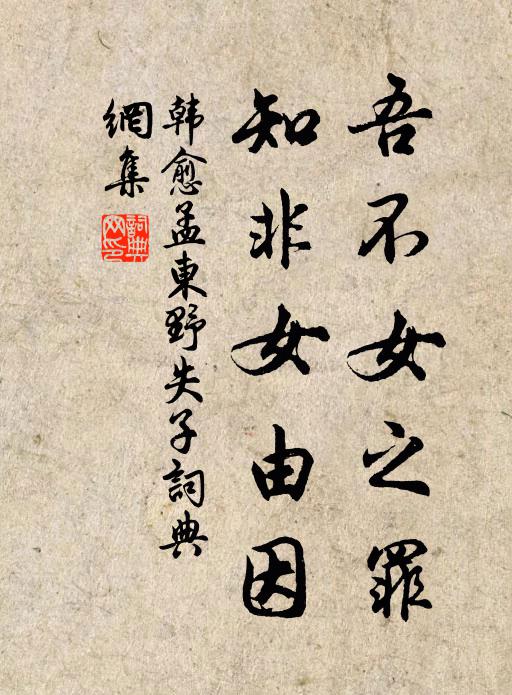 吾不女之罪
知非女由因
韩愈孟東野失子詞典
網集
詞典
网印